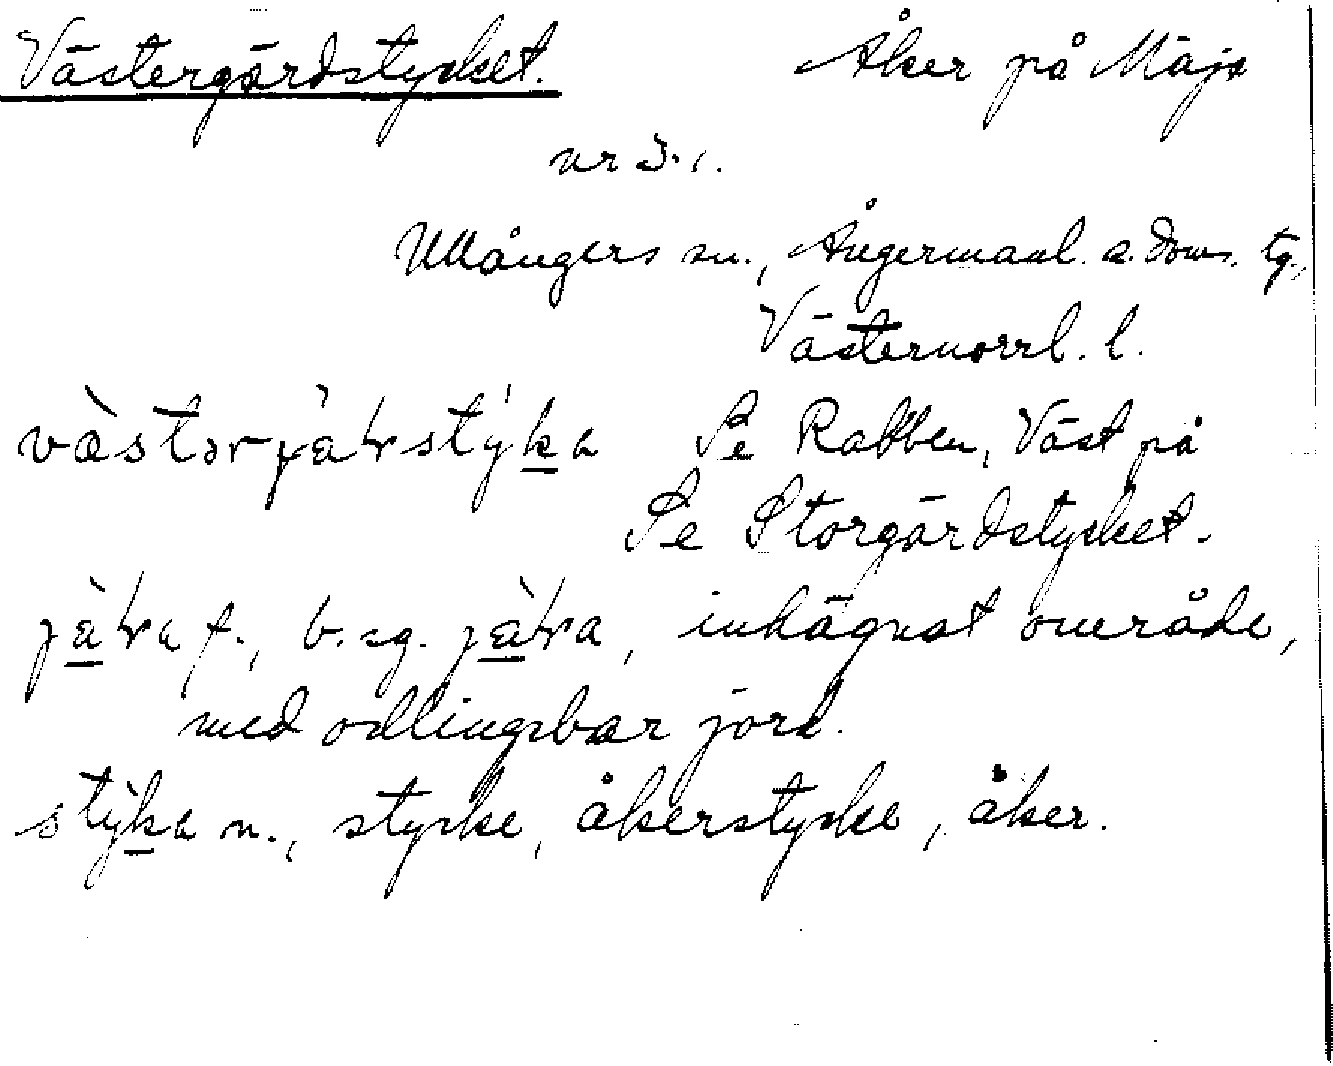 Västergärdstycket. Åker på Mäja
nr 3.1.
Ullångers sn., Ångermanl. s. doms. tg.,
Västernorrl. l.
Se Rabben, Väst på
Se Storgärdstycket.
f., b. sg. , inhägnat område,
med odlingsbar jord.
n., stycke, åkerstycke, åker.